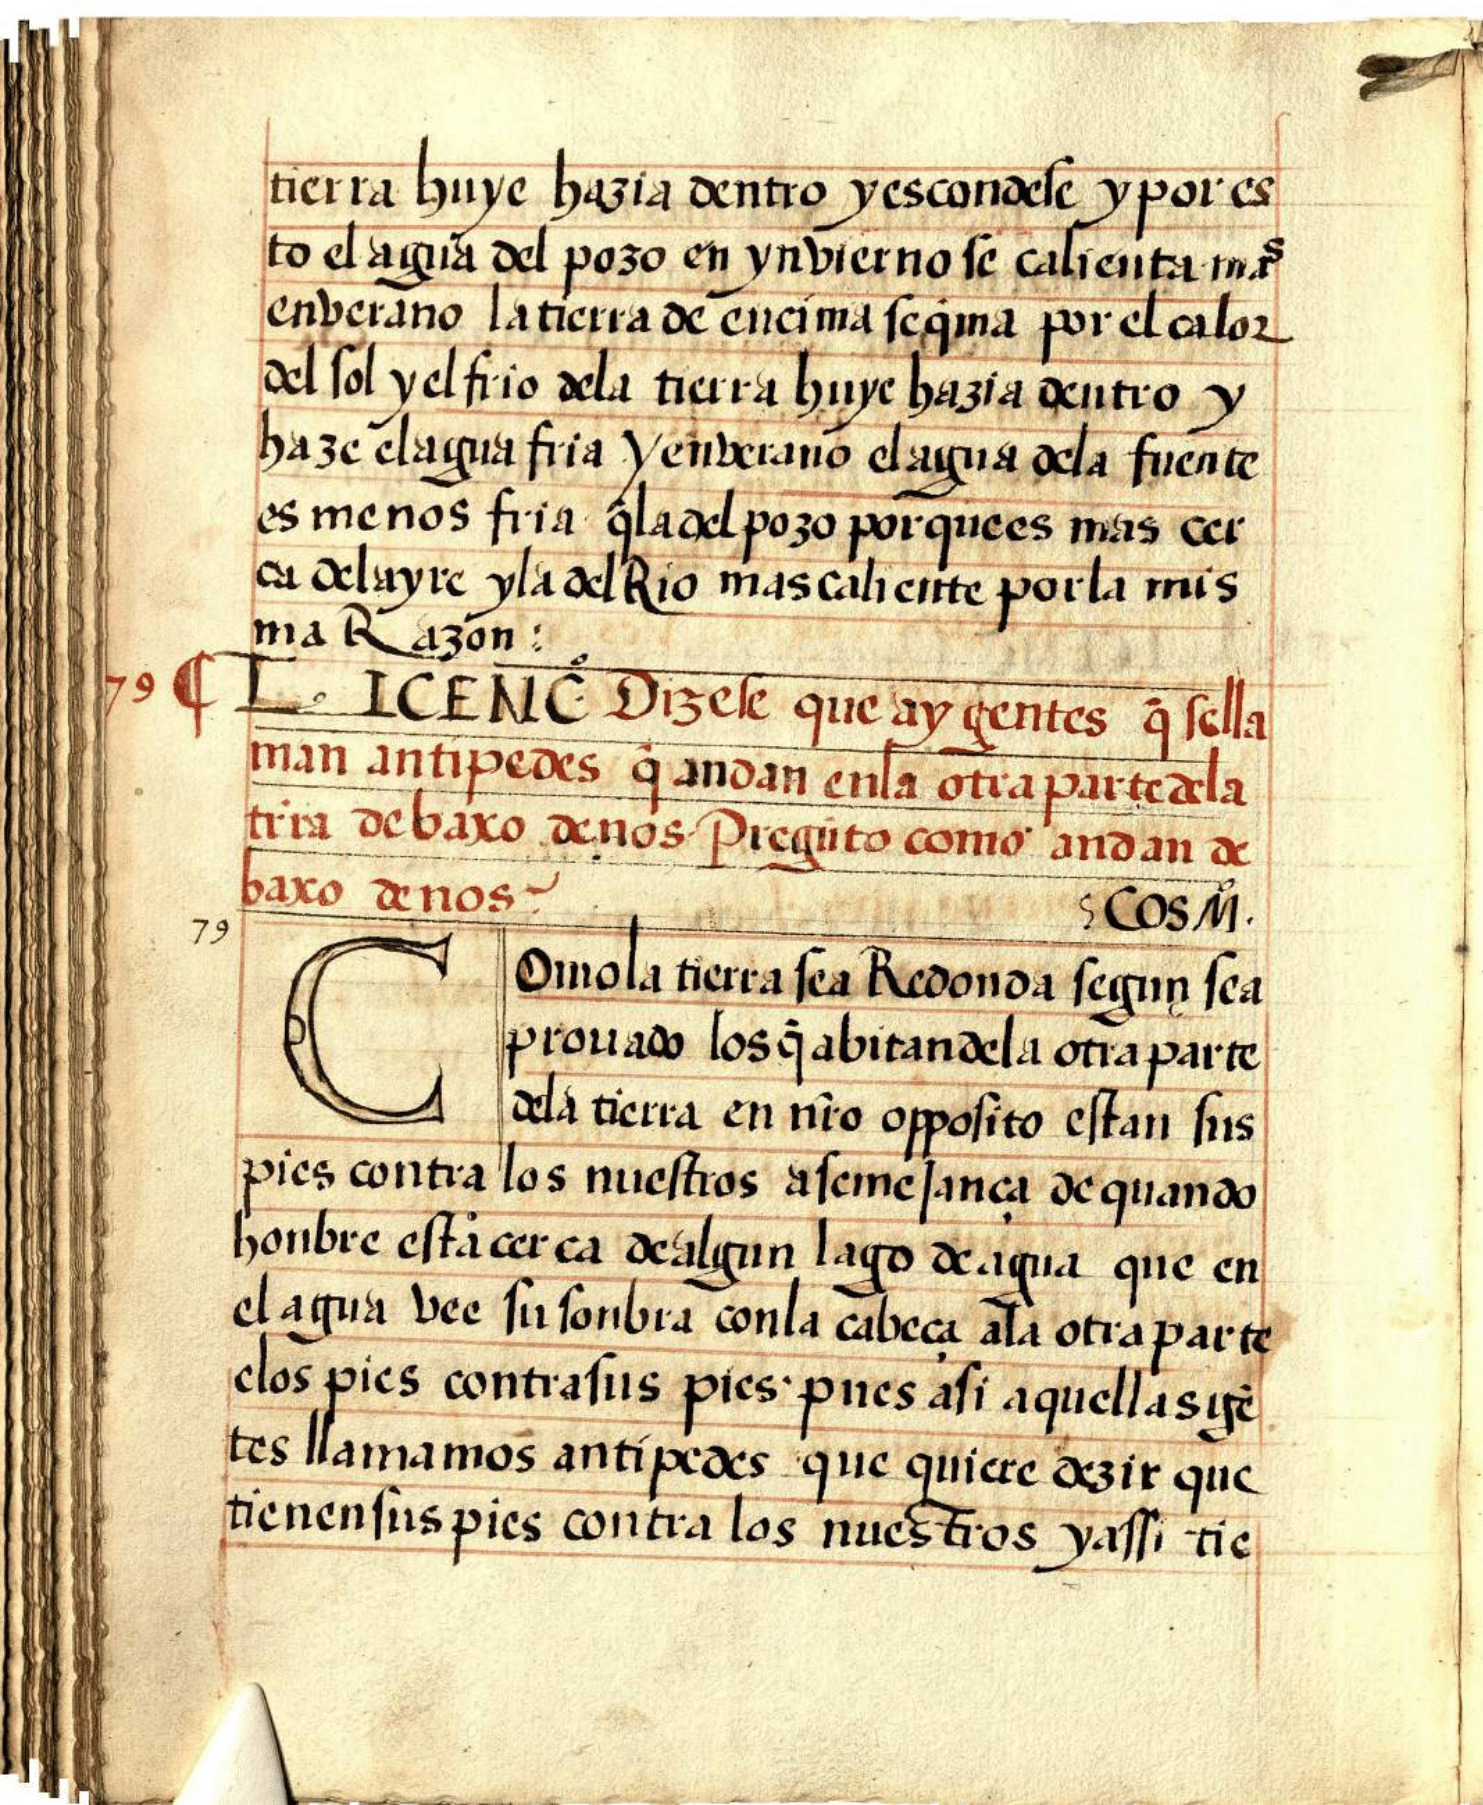 tierra huye hazia dentro y escondese y por es
to el agua del pozo en ynvierno se calienta mas
en verano la tierra de encima se q̃ma por el calor
del sol y el frio de la tierra huye hazia dentro y
haze el agua fria Y en verano el agua de la fuente
es menos fria q̃ la del pozo porque es mas cer
ca del ayre y la del Rio mas caliente por la mis
ma Razon :
79 ¶ L. ICENC̊. Dizese que ay gentes q̃ se lla
man antipedes q̃ andan en la otra parte de la
trr̃a debaxo de nos. Pregũto como andan de
baxo de nos
: COSM̊.
79
Como la tierra sea Redonda segun se a
prouado los q̃ abitan de la otra parte
de la tierra en nr̃o opposito estan sus
pies contra los nuestros a semejança de quando
honbre está cerca de algun lago de agua que en
el agua vee su sonbra con la cabeça a la otra parte
e los pies contra sus pies. pues asi aquellas gẽ
tes llamamos antipedes que quiere dezir que
tienen sus pies contra los nuestros y assi tie